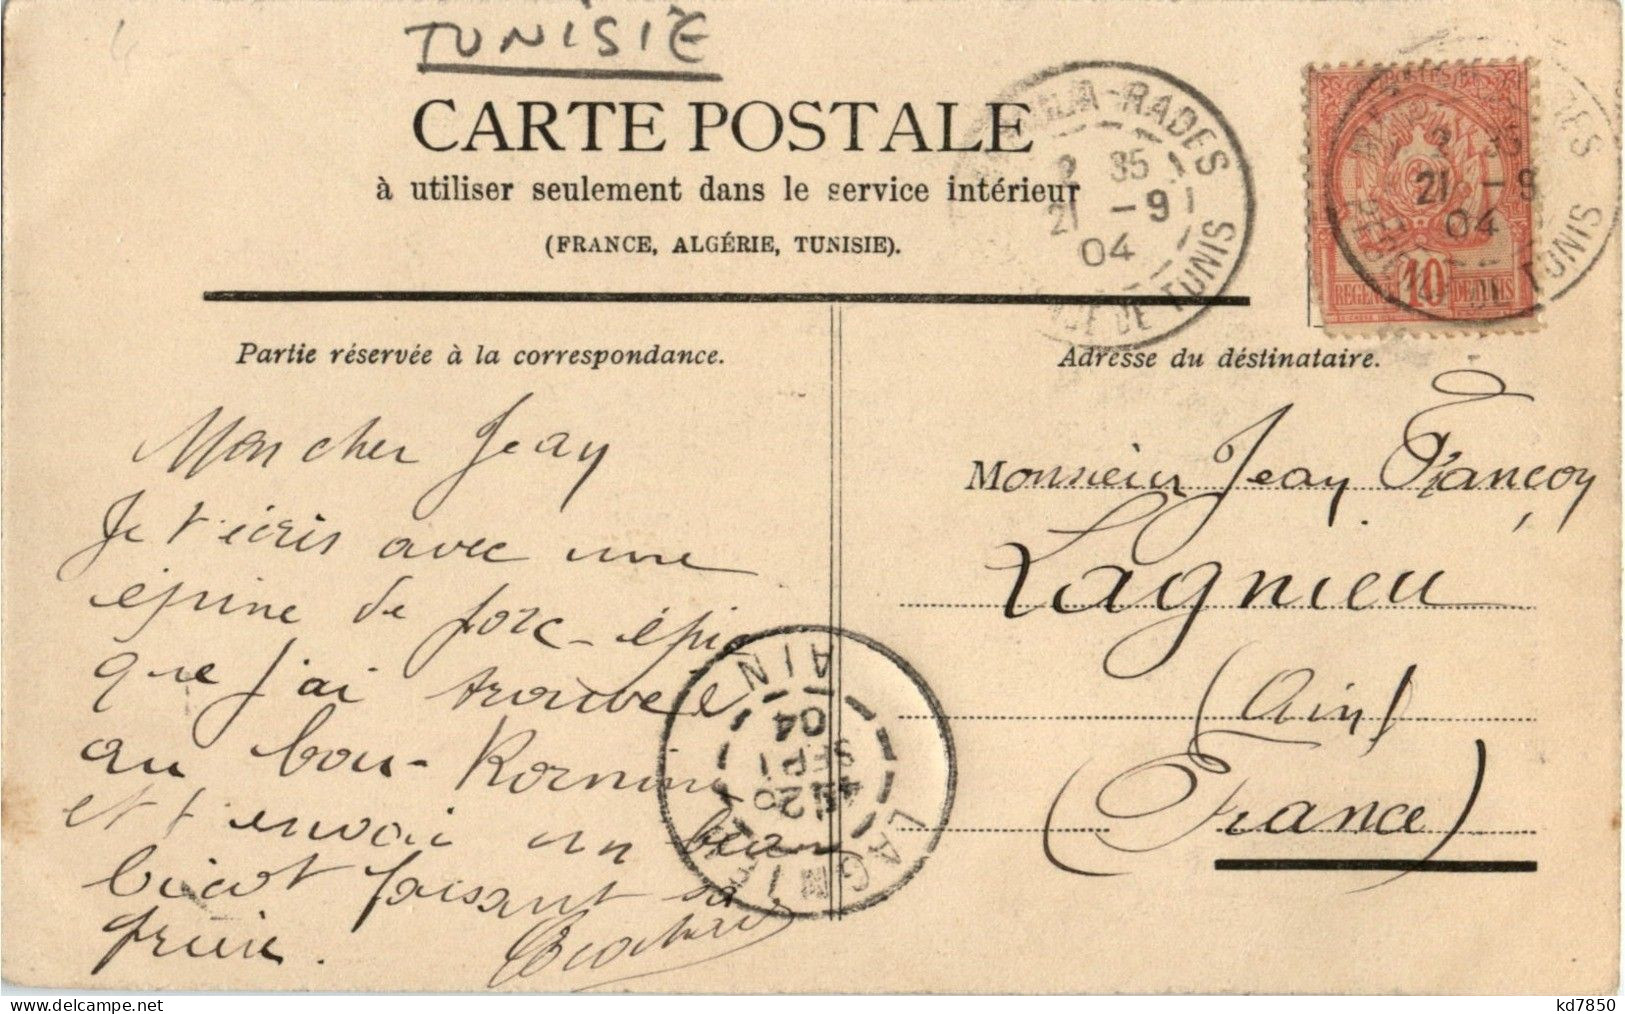 TUNISIE
CARTE POSTALE
à utiliser seulement dans le service intérieur
(FRANCE, ALGÉRIE, TUNISIE).
RADES
2 35
21 -9
04
DE TUNIS
POSTES
2 35
21 -9
04
TUNIS
10
REGENCE DE TUNIS
Partie réservée à la correspondance.
Adresse du déstinataire.
Mon cher Jean
Je t'écris avec une
épine de porc-épic
que j'ai trouvée
au bou-Kornine
et t'envoi un beau
bicot faisant sa
prière.
Monsieur Jean François
Lagnieu
(Ain)
(France)
LAGNIEU
AIN
22
SEPT
04
kd7850